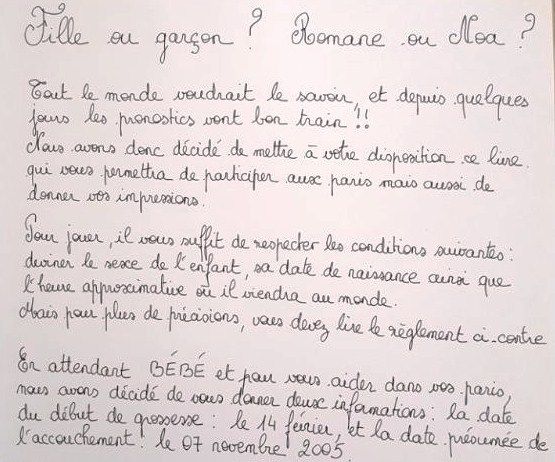 Fille ou garçon ? Romane ou Noa ?
Tout le monde voudrait le savoir, et depuis quelques
jours les pronostics vont bon train !!
Nous avons donc décidé de mettre à votre disposition ce livre
qui vous permettra de participer aux paris mais aussi de
donner vos impressions.
Pour jouer, il vous suffit de respecter les conditions suivantes :
deviner le sexe de l'enfant, sa date de naissance ainsi que
l'heure approximative où il viendra au monde.
Mais pour plus de précisions, vous devez lire le règlement ci-contre
En attendant BÉBÉ et pour vous aider dans vos paris,
nous avons décidé de vous donner deux informations : la date
du début de grossesse : le 14 février, et la date présumée de
l'accouchement : le 07 novembre 2005.